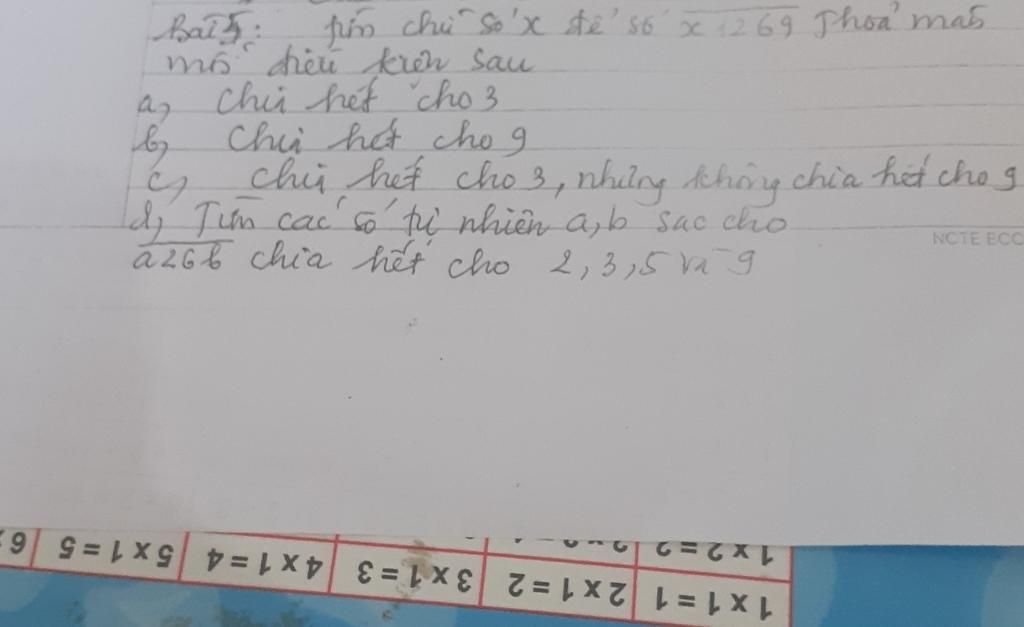 Bài 5: tìm chữ số x để số x1269 Thoả mãn
mỗi điều kiện sau
a, Chia hết cho 3
b, Chia hết cho 9
c, Chia hết cho 3, nhưng không chia hết cho 9
d, Tìm các số tự nhiên a,b sac cho
a26b chia hết cho 2,3,5 và 9
NCTE ECC
1 x 2 = 2
5 x 1 = 5 4 x 1 = 4 3 x 1 = 3 2 x 1 = 2 1 x 1 = 1